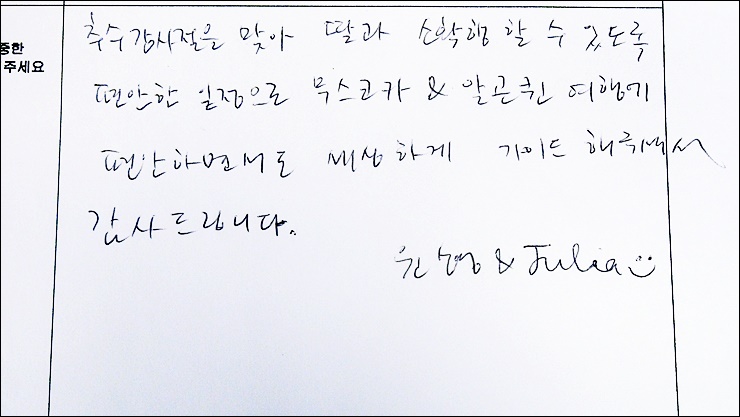 중한
주세요
추수감사절을 맞아 딸과 소확행 할 수 있도록
편안한 일정으로 무스코카 & 알곤퀸 여행기
편안하면서도 세심하게 가이드 해주셔서
감사드립니다.
& Julia